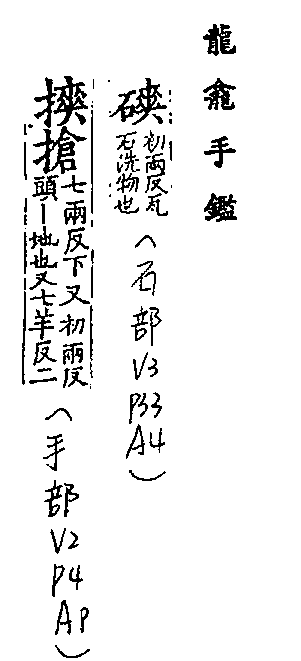 龍龕手鑑
磢初兩反瓦
石洗物也
(石部V3P33A4)
摤搶七兩反下又初兩反
頭—地也又七羊反二
(手部V2P4AP)